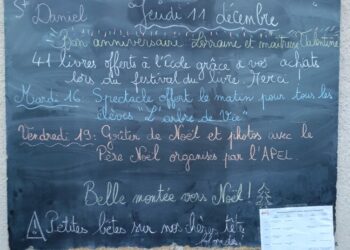 St Daniel Jeudi 11 décembre
Bon anniversaire Lorraine et maîtresse Valentine
41 livres offerts à l'école grâce à vos achats
lors du festival du livre. Merci
Mardi 16: Spectacle offert le matin pour tous les
élèves "L'arbre de Vie"
Vendredi 19: Goûter de Noël et photos avec le
Père Noël organisés par l'APEL.
Belle montée vers Noël!
Petites bêtes sur nos chères têtes